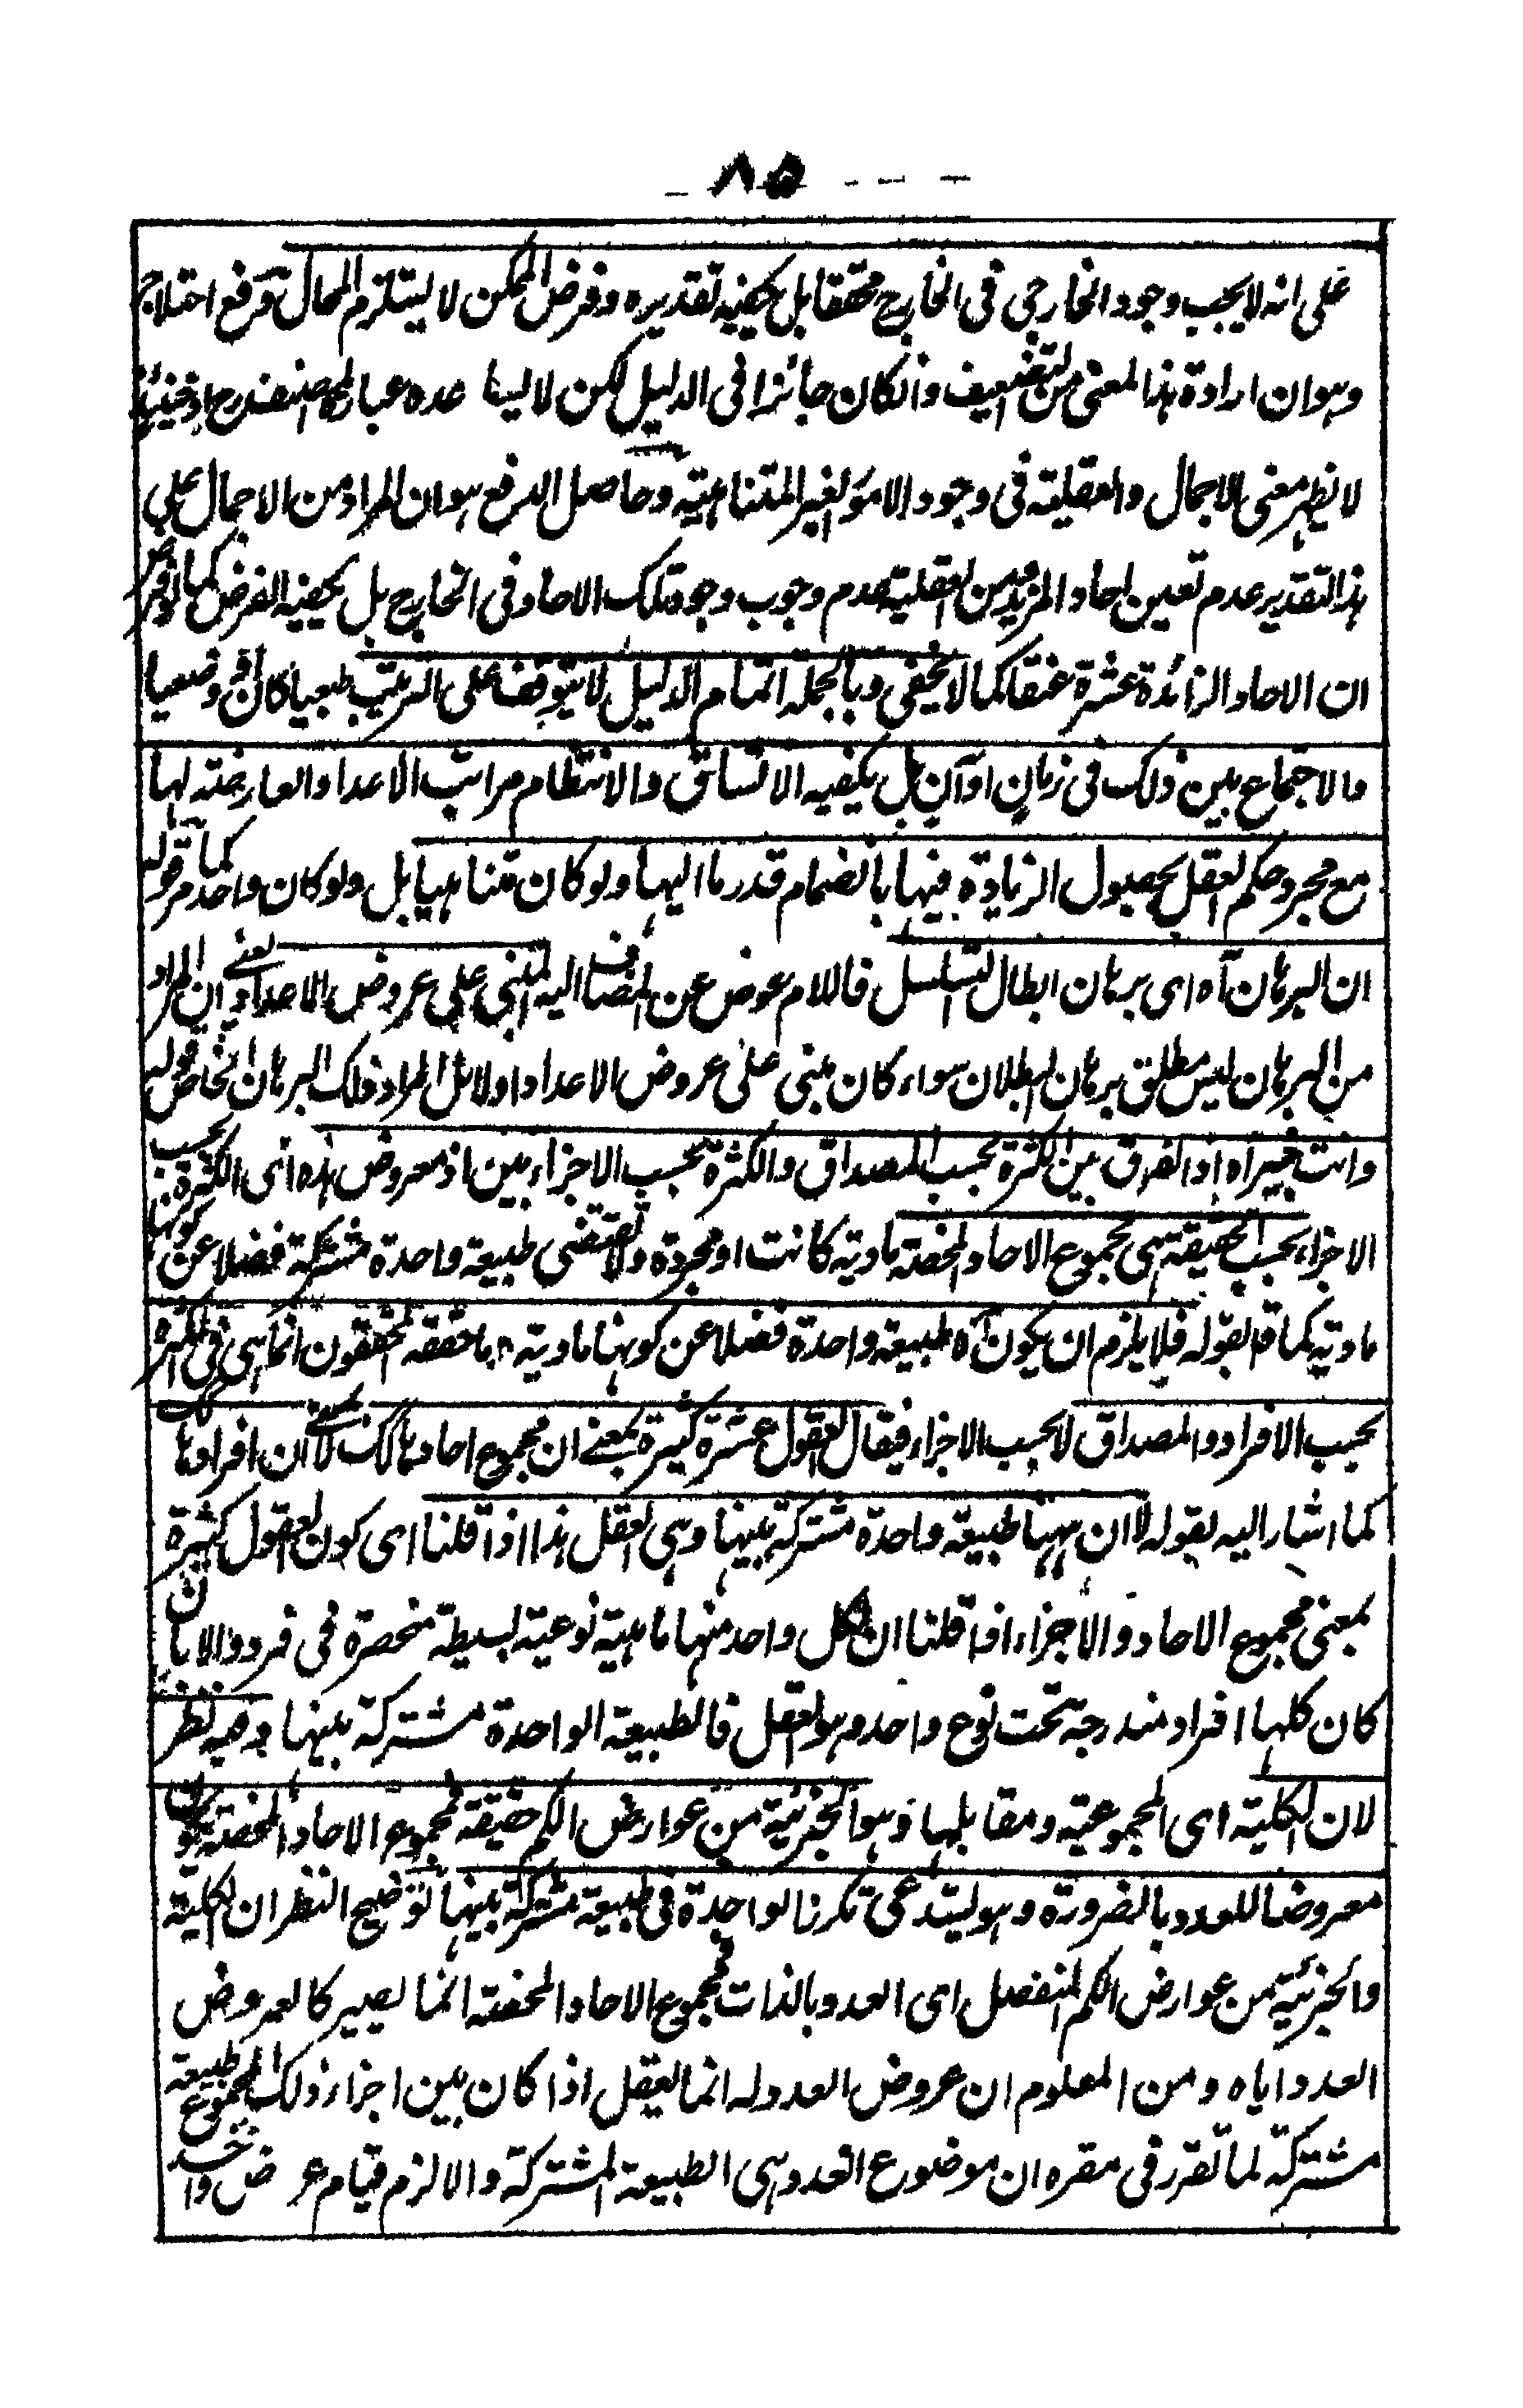 ٨٥
على انه لا يجب وجود الخارجي في الخارج محققا بل يكفيه تقديره وفرض الممكن لا يستلزم المحال قوله رفع اختلاج
وهو ان ارادة هذا المعنى من التضعيف وان كان جائزا في الدليل لكن لا يساعده عبارة المصنف رح اذ حينئذ
لا يظهر معنى الاجمال والعقلية في وجود الامور الغير المتناهية وحاصل الدفع هو ان المراد من الاجمال على
هذا التقدير عدم تعيين احاد المزيد من العقلية عدم وجوب وجود تلك الاحاد في الخارج بل يكفيه الفرض كما لو فرض
ان الاحاد الزائدة عشرة عنقا كما لا يخفى وبالجملة اتمام الدليل لا يتوقف على الترتيب طبعيا كان او وضعيا
والاجتماع بين ذلك في زمان او آن بل يكفيه الاتساق والانتظام مراتب الاعداد العارضة لها
مع مجرد حكم العقل بحصول الزيادة فيها بانضمام قدر ما اليها ولو كان متناهيا بل ولو كان واحد كما مر قوله
ان البرهان آه اى برهان ابطال التسلسل فاللام عوض عن المضاف اليه المبني على عروض الاعداد يعني ان المراد
من البرهان ليس مطلق برهان البطلان سواء كان مبني على عروض الاعداد اولا بل المراد ذلك البرهان الخاص قوله
وانت خبير آه اذ الفرق بين الكثرة بحسب المصداق والكثرة بحسب الاجزاء بين اذ معروض هذه اى الكثرة بحسب
الاجزاء بحسب الحقيقة هى مجموع الاحاد المحضة مادية كانت او مجردة ولا تقتضي طبيعة واحدة مشتركة فضلا عن كونها
مادية كما قال بقوله فلا يلزم ان يكون آه طبيعة واحدة فضلا عن كونها مادية وما حققه المحققون انما هى في الكثرة
بحسب الافراد والمصداق لا بحسب الاجزاء فيقال العقول عشرة كثيرة بمعنى ان مجموع احادها كذلك لا بمعنى ان افرادها كك
كما اشار اليه بقوله لا ان ههنا طبيعة واحدة مشتركة بينها وهى العقل هذا اذا قلنا اى كون العقول كثيرة
بمعنى مجموع الاحاد والاجزاء اذا قلنا ان لكل واحد منها ماهية نوعية بسيطة منحصرة في فرد والا بان
كان كلها افراد مندرجة تحت نوع واحد وهو العقل فالطبيعة الواحدة مشتركة بينها وفيه نظر
لان الكلية اى المجموعية ومقابلها وهو الجزئية من عوارض الكم حقيقة فمجموع الاحاد المحضة يكون
معروضا للعدد بالضرورة وهو يستدعى تكرر الواحدة في طبيعة مشتركة بينها توضيح النظر ان الكلية
والجزئية من عوارض الكم المنفصل اى العدد بالذات فمجموع الاحاد المحضة انما يصير كالمعروض
العدد اياه ومن المعلوم ان عروض العدد له انما يعقل اذا كان بين اجزاء ذلك المجموع طبيعة
مشتركة لما تقرر في مقره ان موضوع العدد هى الطبيعة المشتركة والا لزم قيام عرض واحد